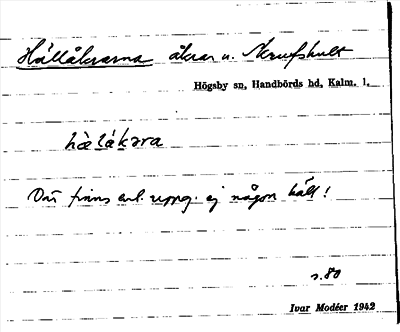 Hällåkrarna åkrar u. Skrufshult
Högsby sn, Handbörds hd, Kalm. l.
hä̀låkara
Där finns enl. uppg. ej någon häll!
s. 80
Ivar Modéer 1942